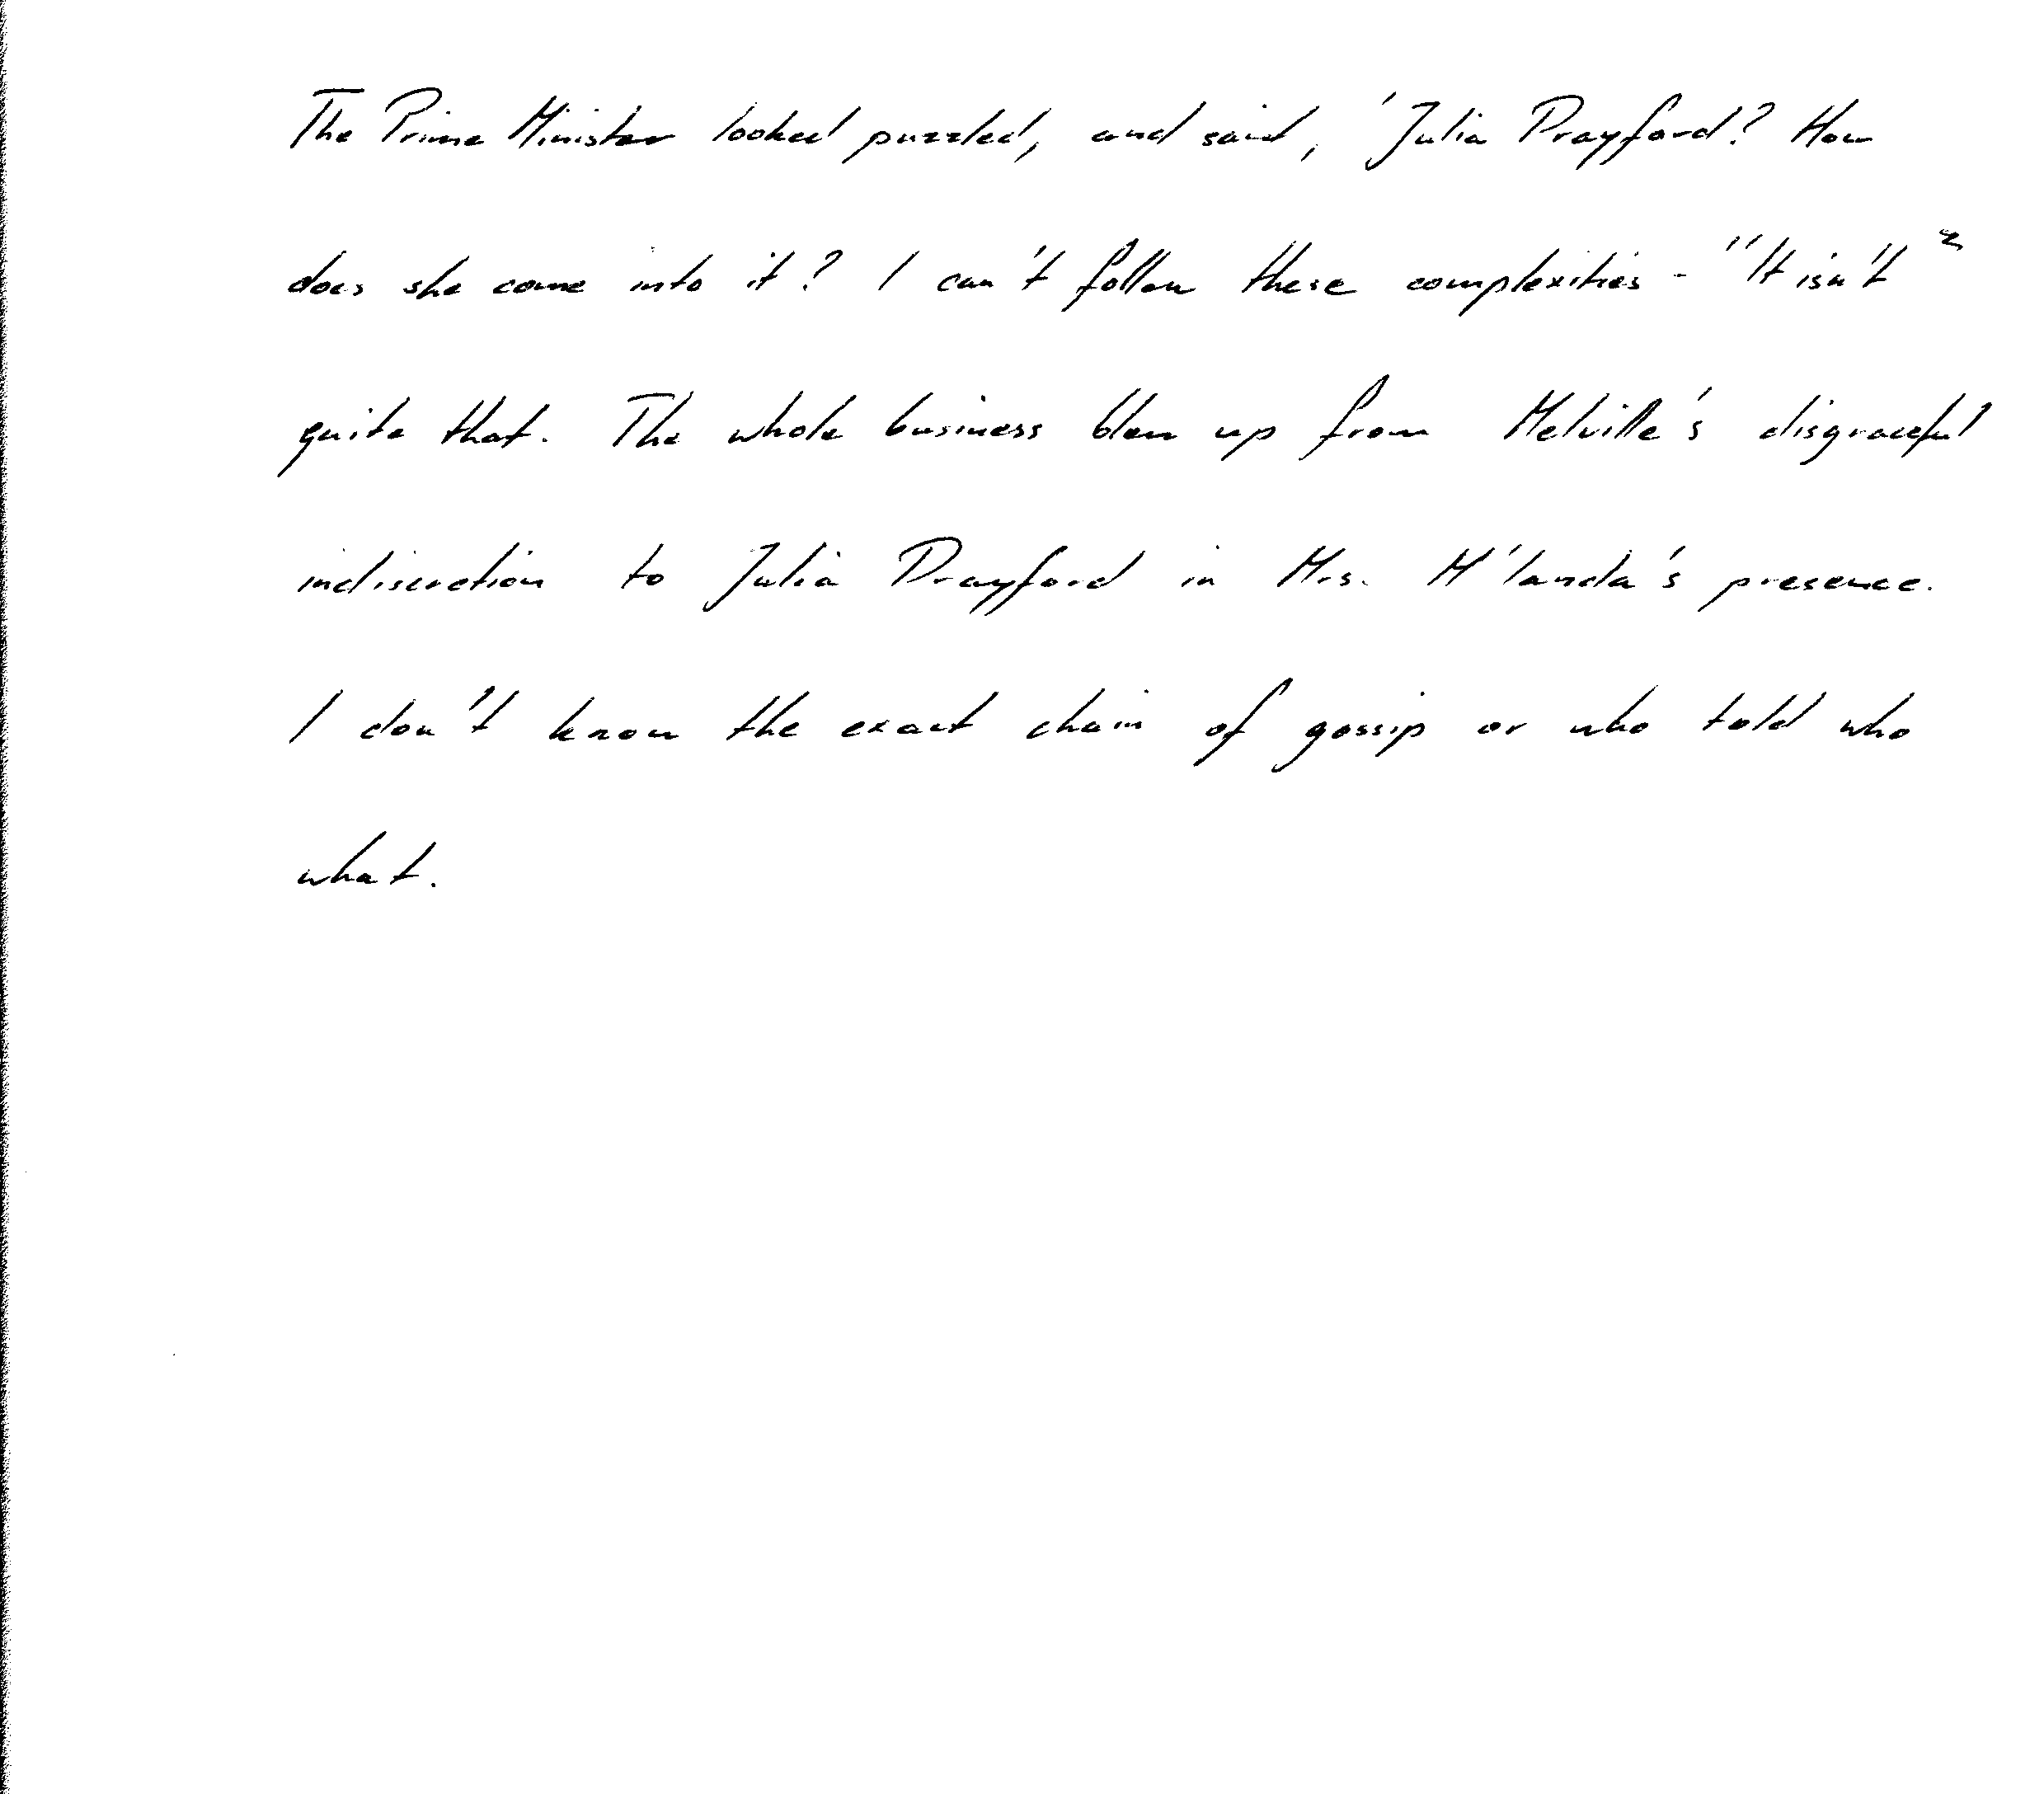 The Prime Minister looked puzzled, and said, 'Julia Drayford? How
does she come into it? I can't follow these complexities - "It isn't
quite that. The whole business blew up from Melville's disgraceful
indiscretion to Julia Drayford in Mrs. M'landa's presence.
I don't know the exact chain of gossip or who told who
what.